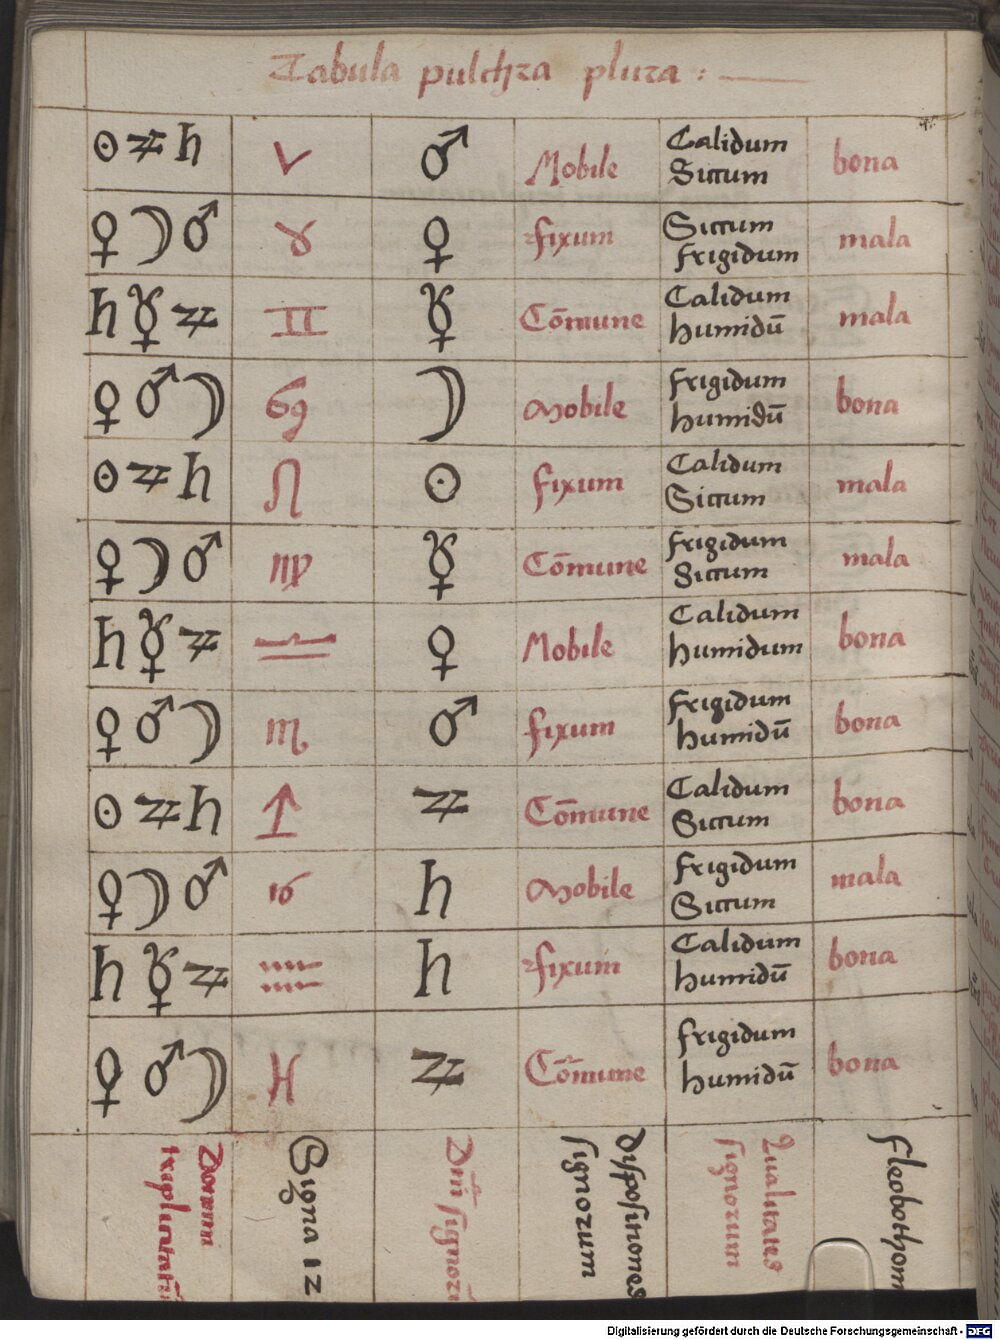 Tabula pulchra plura :
☉ ♃ ♄ ♈ ♂ Mobile Calidum Siccum bona
♀ ☽ ♂ ♉ ♀ fixum Siccum frigidum mala
♄ ☿ ♃ ♊ ☿ Cōmune Calidum humidū mala
♀ ♂ ☽ ♋ ☽ Mobile frigidum humidū bona
☉ ♃ ♄ ♌ ☉ fixum Calidum Siccum mala
♀ ☽ ♂ ♍ ☿ Cōmune frigidum Siccum mala
♄ ☿ ♃ ♎ ♀ Mobile Calidum humidum bona
♀ ♂ ☽ ♏ ♂ fixum frigidum humidū bona
☉ ♃ ♄ ♐ ♃ Cōmune Calidum Siccum bona
♀ ☽ ♂ ♑ ♄ Mobile frigidum Siccum mala
♄ ☿ ♃ ♒ ♄ fixum Calidum humidū bona
♀ ♂ ☽ ♓ ♃ Cōmune frigidum humidū bona
Signa 12
Dispositiones
signorum
Qualitates
signorum
fleobothom
Digitalisierung gefördert durch die Deutsche Forschungsgemeinschaft - DFG